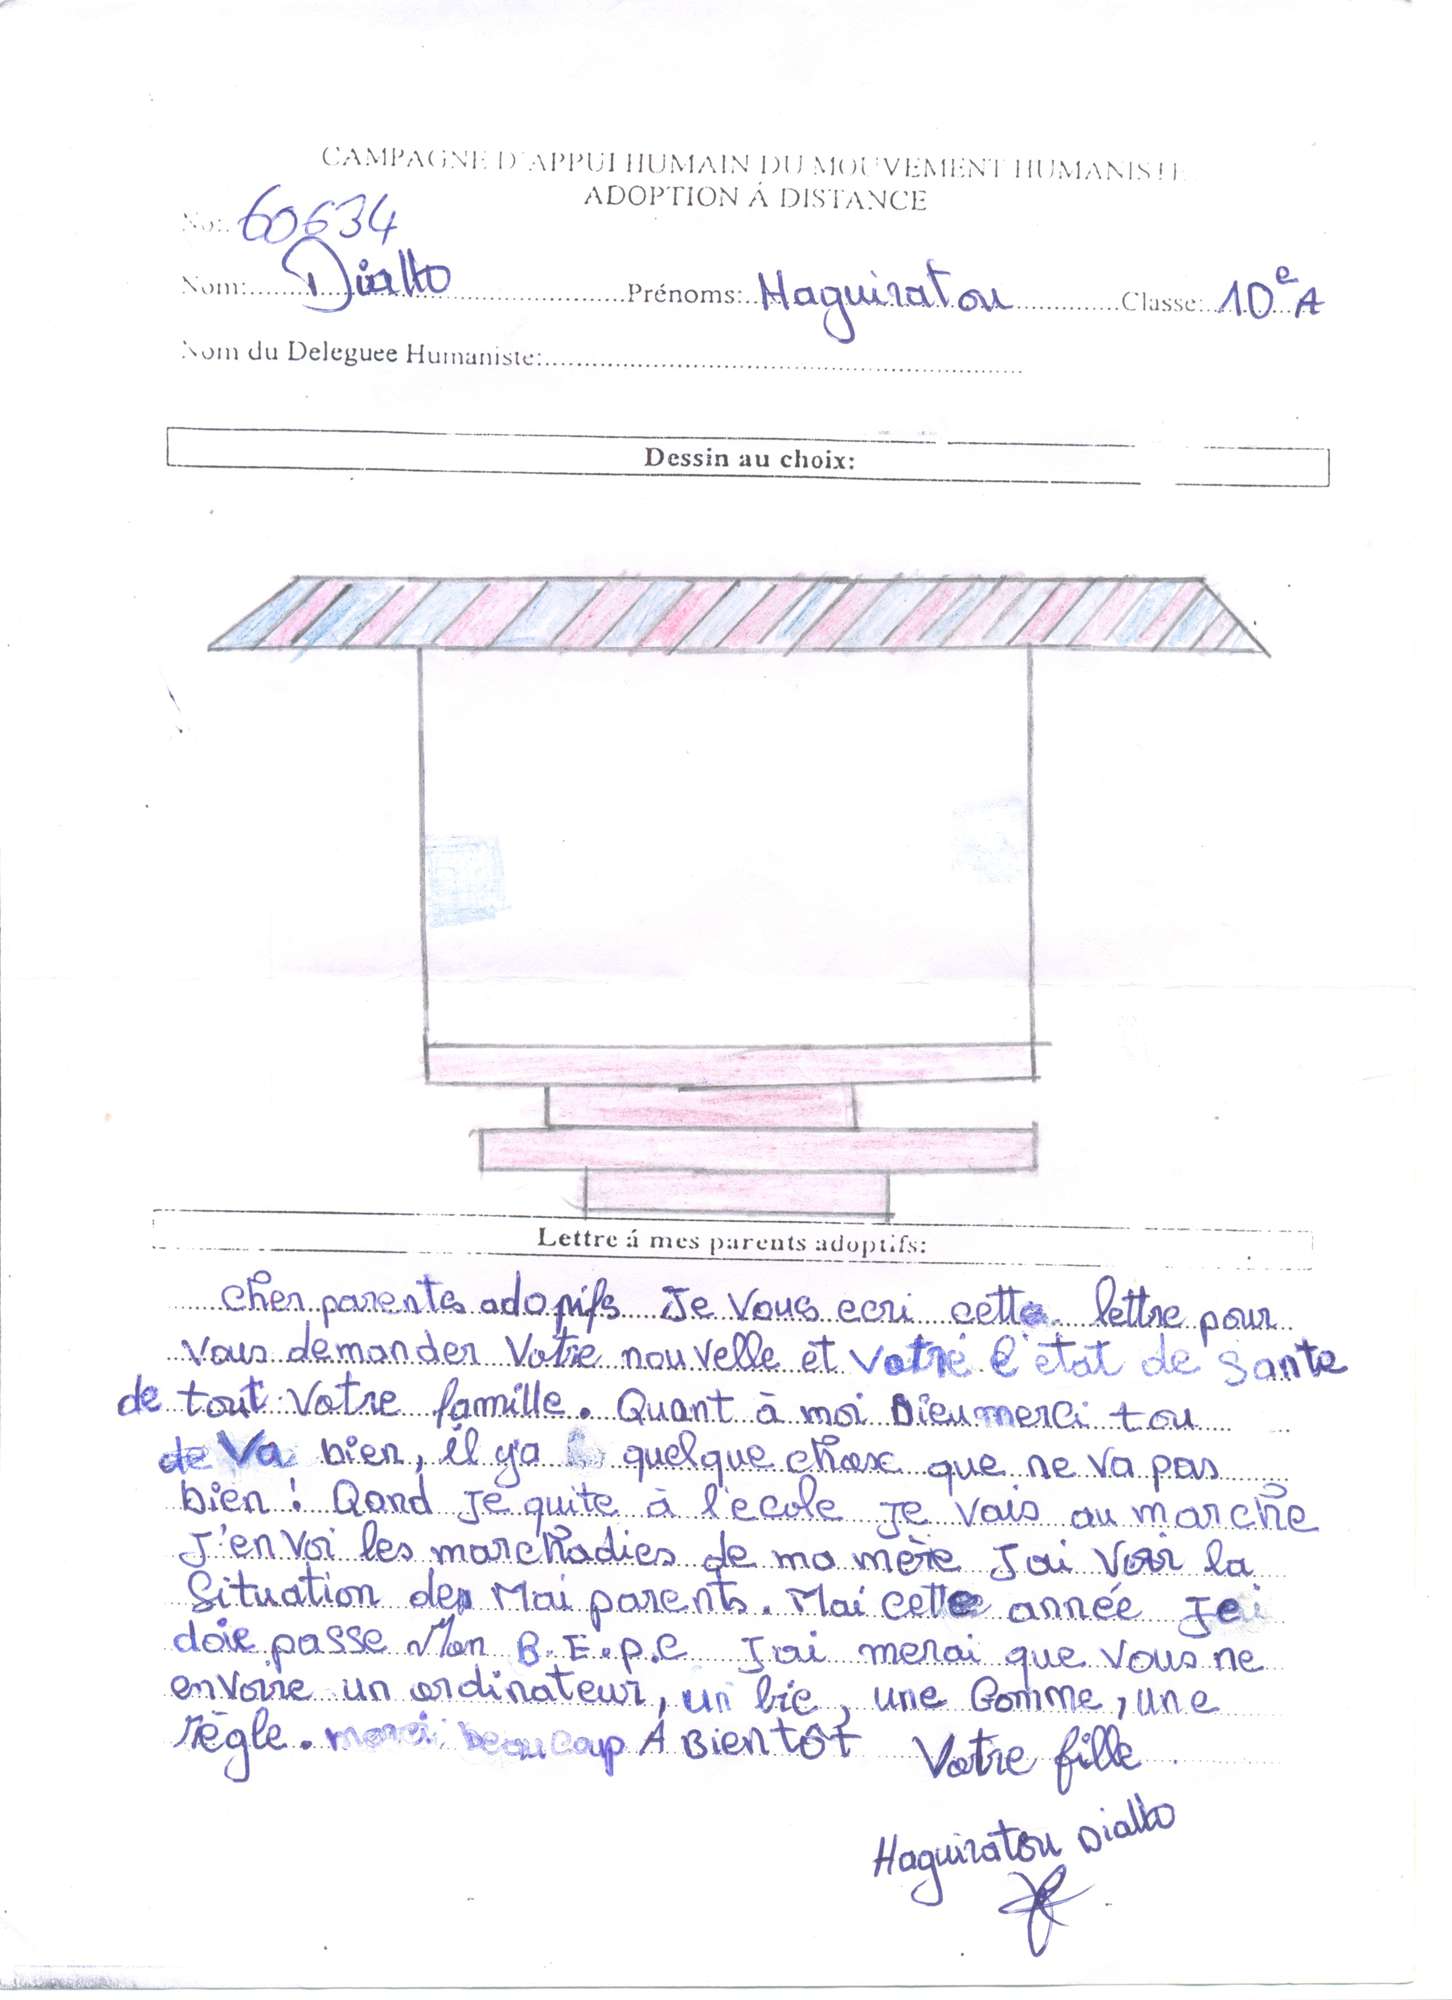 CAMPAGNE D'APPUI HUMAIN DU MOUVEMENT HUMANISTE
ADOPTION Á DISTANCE
No: 60634
Nom: Diallo Prénoms: Haguiratou Classe: 10e A
Nom du Deleguee Humaniste:
Dessin au choix:
Lettre á mes parents adoptifs:
Cher parents adopifs Je Vous ecri cette lettre pour
Vous demander Votre nouvelle et Votre l'etat de Sante
de tout Votre famille. Quant à moi Dieu merci tou
de Va bien, il y'a quelque chose que ne va pas
bien ! Qand Je quite à l'ecole Je Vais au marche
J'en Voi les marchadies de ma mère J'ai Voir la
Situation de Mai parents. Mai cette année Je
doie passe Mon B.E.P.C J'ai merai que Vous ne
envoire un ordinateur, un bic, une Gomme, une
règle. merci beaucoup À Bientôt Votre fille
Haguiratou Diallo